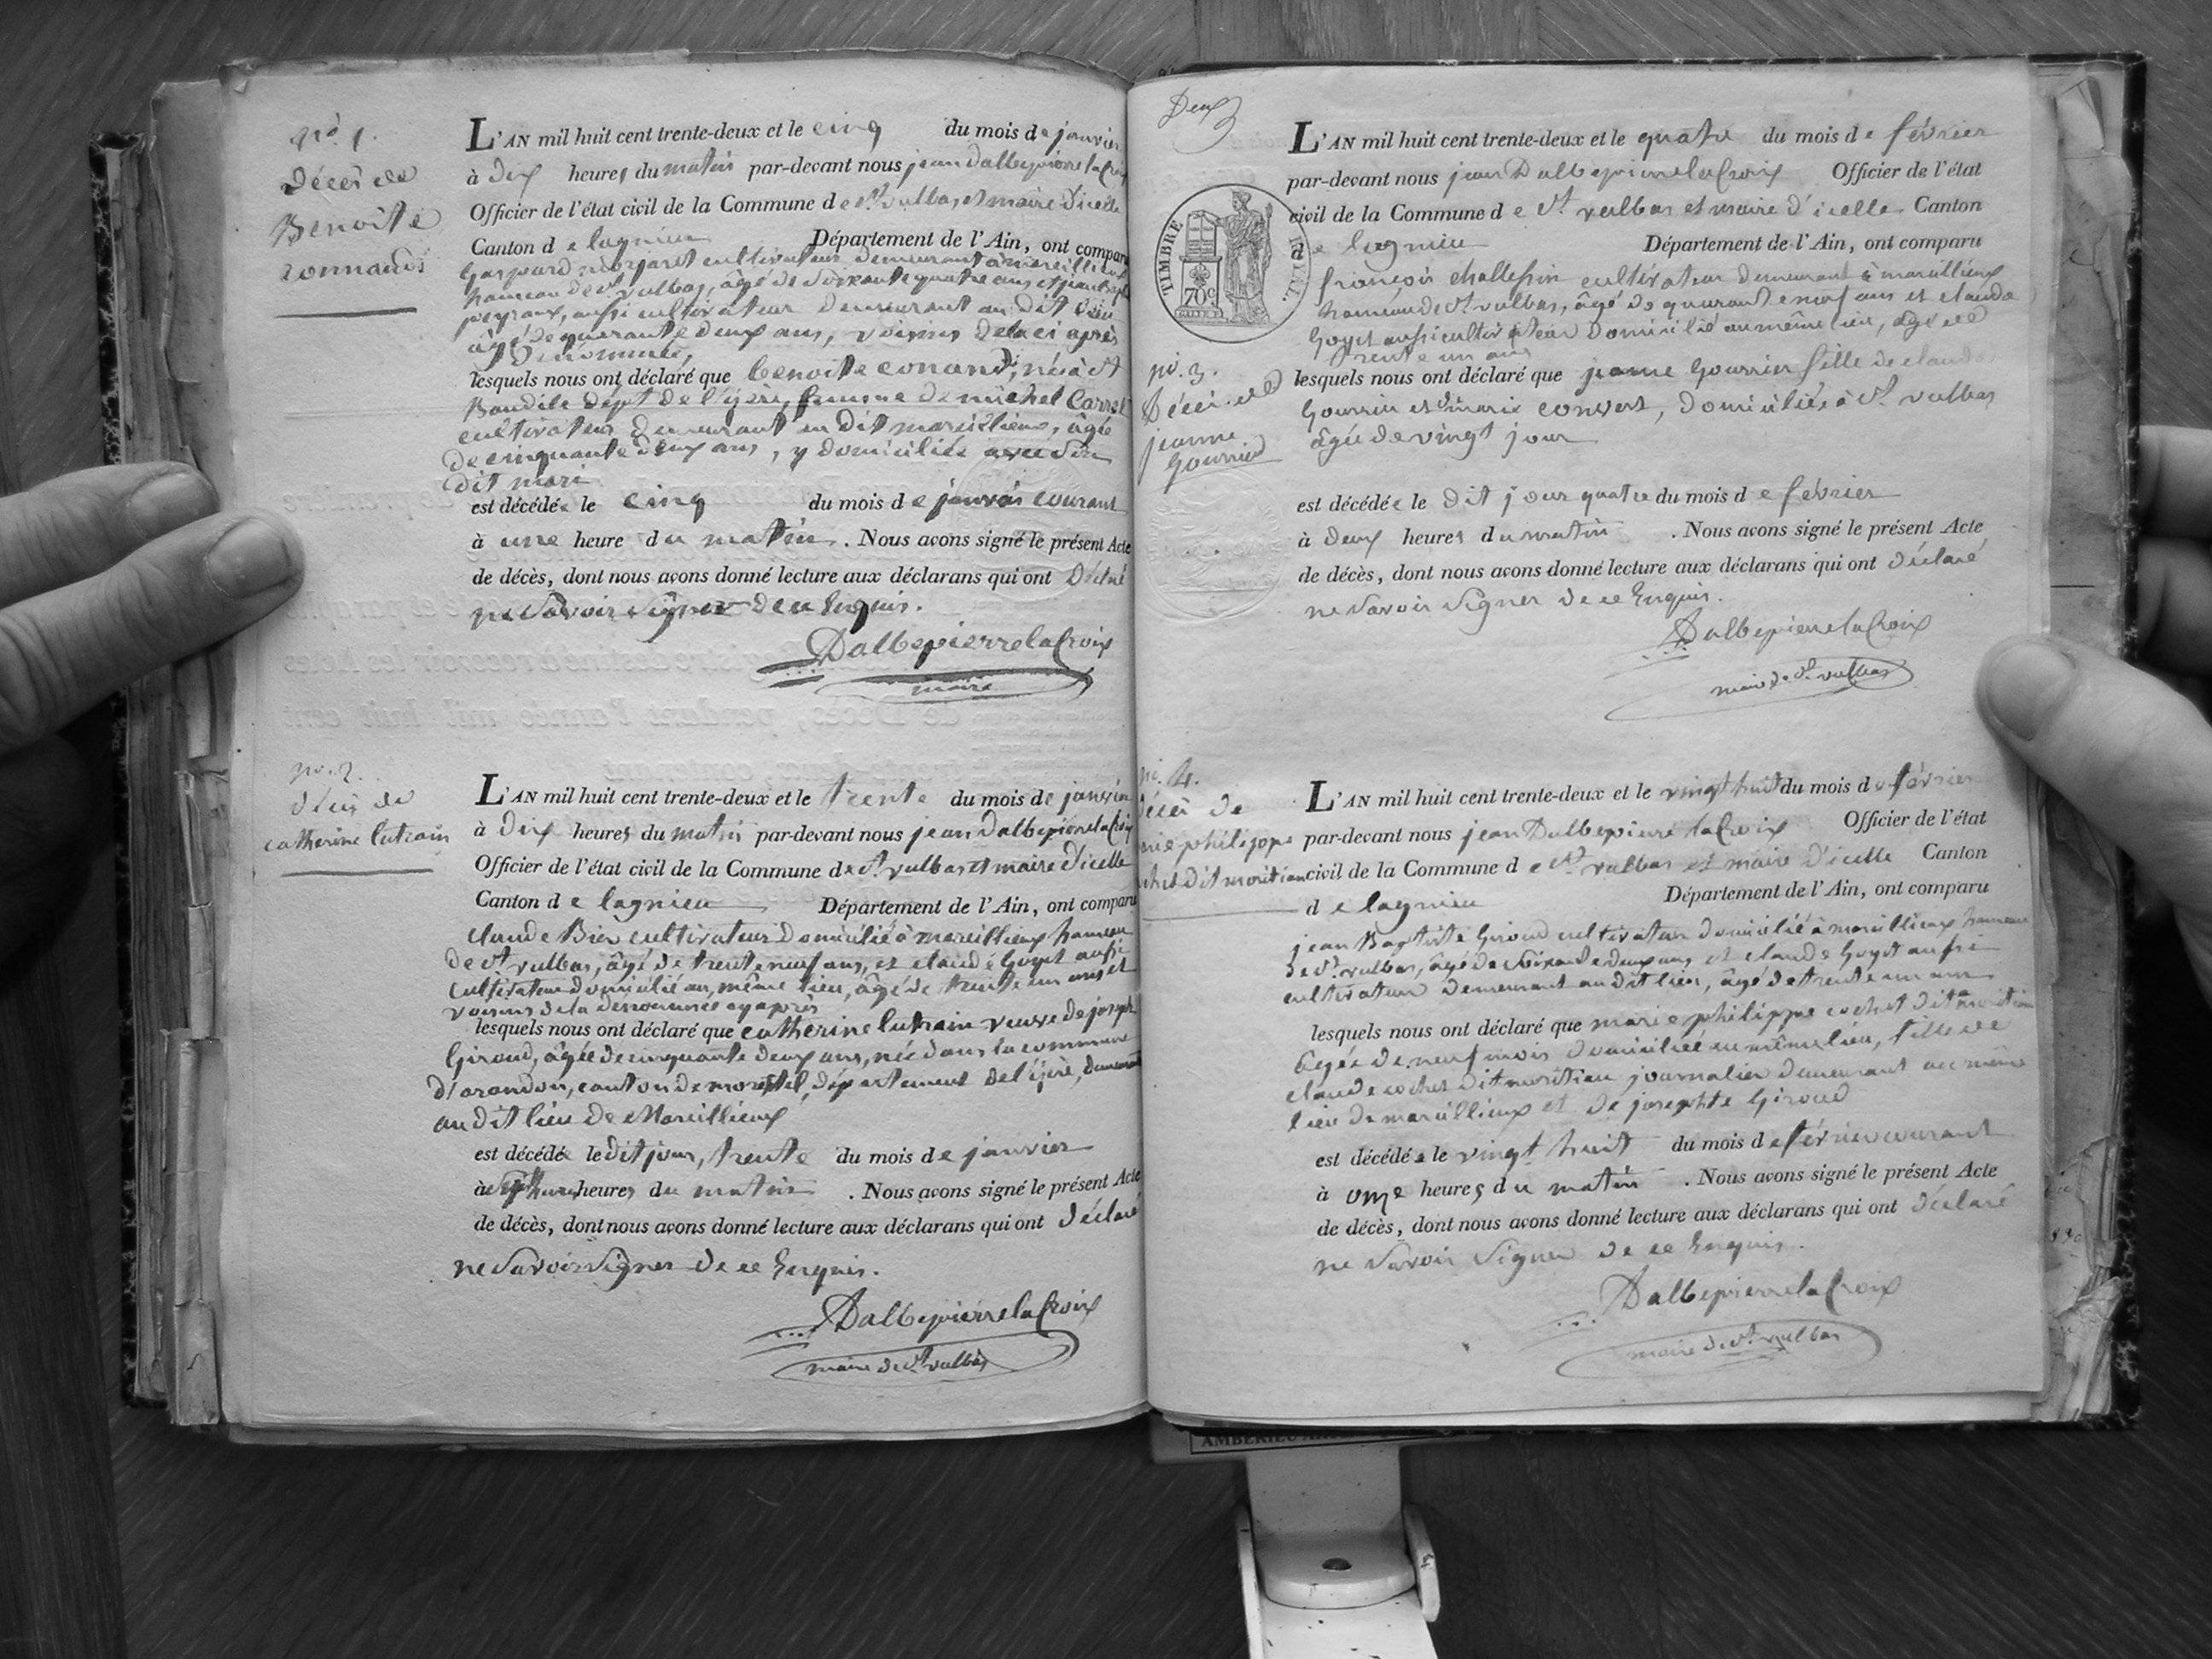 no. 1.
décès de
Benoite
connand
L'AN mil huit cent trente-deux et le cinq du mois de janvier
à dix heures du matin par-devant nous jean Dalbepierre la Croix
Officier de l'état civil de la Commune de St. vulbas et maire d'icelle
Canton de lagnieu Département de l'Ain, ont comparu
Gaspard cultivateur demeurant à mareillieux
hameau de St. vulbas, âgé de soixante quatre ans et jean
peyraux, aussi cultivateur demeurant au dit lieu
âgé de quarante deux ans, voisins de la ci après
dénommée,
lesquels nous ont déclaré que benoite conand, née à St
Baudile dépt. de l'isère, femme de michel Carret
cultivateur demeurant au dit mareillieux, âgée
de cinquante deux ans, y domiciliée avec son
dit mari
est décédée le cinq du mois de janvier courant
à une heure du matin. Nous avons signé le présent Acte
de décès, dont nous avons donné lecture aux déclarans qui ont déclaré
ne savoir signer de ce Enquis.
Dalbepierre la Croix
maire
no. 2.
décès de
catherine lutrain
L'AN mil huit cent trente-deux et le trente du mois de janvier
à dix heures du matin par-devant nous jean Dalbepierre la Croix
Officier de l'état civil de la Commune de St. vulbas et maire d'icelle
Canton de lagnieu Département de l'Ain, ont comparu
claude cultivateur domicilié à mareillieux hameau
de St. vulbas, âgé de trente neuf ans, et claude Goyet aussi
cultivateur domicilié au même lieu, âgé de trente un ans et
voisins de la dénommée cy après
lesquels nous ont déclaré que catherine lutrain veuve de joseph
Giroud, âgée de cinquante deux ans, née dans la commune
d'arandon, canton de morestel, département de l'isère, demeurant
au dit lieu de Mareillieux
est décédée le dit jour, trente du mois de janvier
à sept heures du matin. Nous avons signé le présent Acte
de décès, dont nous avons donné lecture aux déclarans qui ont déclaré
ne savoir signer de ce Enquis.
Dalbepierre la Croix
maire de St. vulbas
Deux
TIMBRE ROYAL.
70c
no. 3.
Décès de
jeanne
Gourrin
L'AN mil huit cent trente-deux et le quatre du mois de février
par-devant nous jean Dalbepierre la Croix Officier de l'état
civil de la Commune de St. vulbas et maire d'icelle Canton
de lagnieu Département de l'Ain, ont comparu
françois cultivateur demeurant à mareillieux
hameau de St. vulbas, âgé de quarante neuf ans et claude
Goyet aussi cultivateur domicilié au même lieu, âgé de
trente un ans
lesquels nous ont déclaré que jeanne Gourrin fille de claude
Gourrin et marie convert, domiciliés à St. vulbas
âgée de vingt jour
est décédée le dit jour quatre du mois de février
à deux heures du matin. Nous avons signé le présent Acte
de décès, dont nous avons donné lecture aux déclarans qui ont déclaré
ne savoir signer de ce Enquis.
Dalbepierre la Croix
maire de St. vulbas
no. 4.
décès de
marie philippe
cochet dit moritian
L'AN mil huit cent trente-deux et le vingt huit du mois de février
par-devant nous jean Dalbepierre la Croix Officier de l'état
civil de la Commune de St. vulbas et maire d'icelle Canton
de lagnieu Département de l'Ain, ont comparu
jean Baptiste Giroud cultivateur domicilié à mareillieux hameau
de St. vulbas, âgé de soixante deux ans et claude Goyet aussi
cultivateur demeurant au dit lieu, âgé de trente un ans
lesquels nous ont déclaré que marie philippe cochet dit moritian
âgée de neuf mois domiciliée au même lieu, fille de
claude cochet dit moritian journalier demeurant au même
lieu de mareillieux et de josephte Giroud
est décédée le vingt huit du mois de février courant
à onze heures du matin. Nous avons signé le présent Acte
de décès, dont nous avons donné lecture aux déclarans qui ont déclaré
ne savoir signer de ce Enquis.
Dalbepierre la Croix
maire de St. vulbas